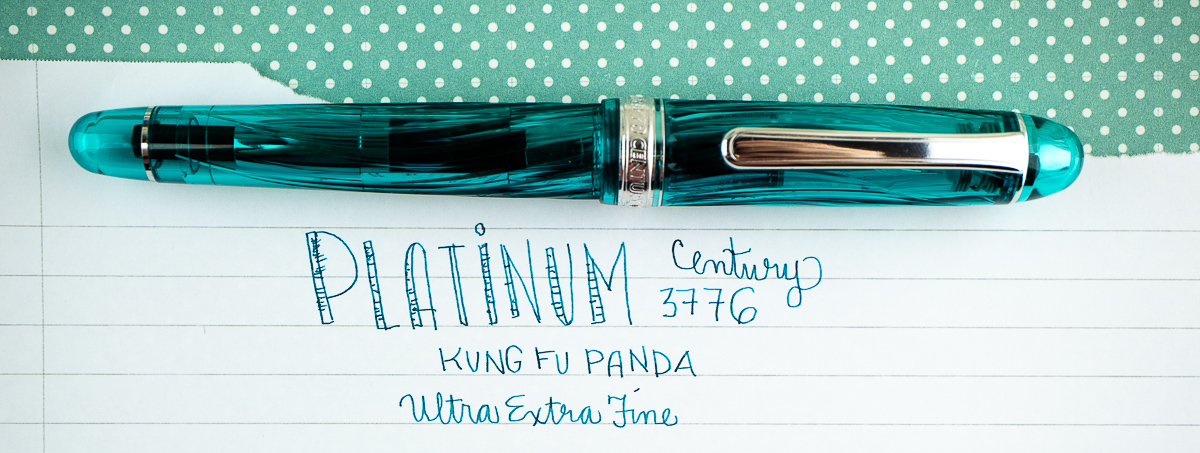 PLATiNUM Century
3776
KUNG FU PANDA
Ultra Extra Fine